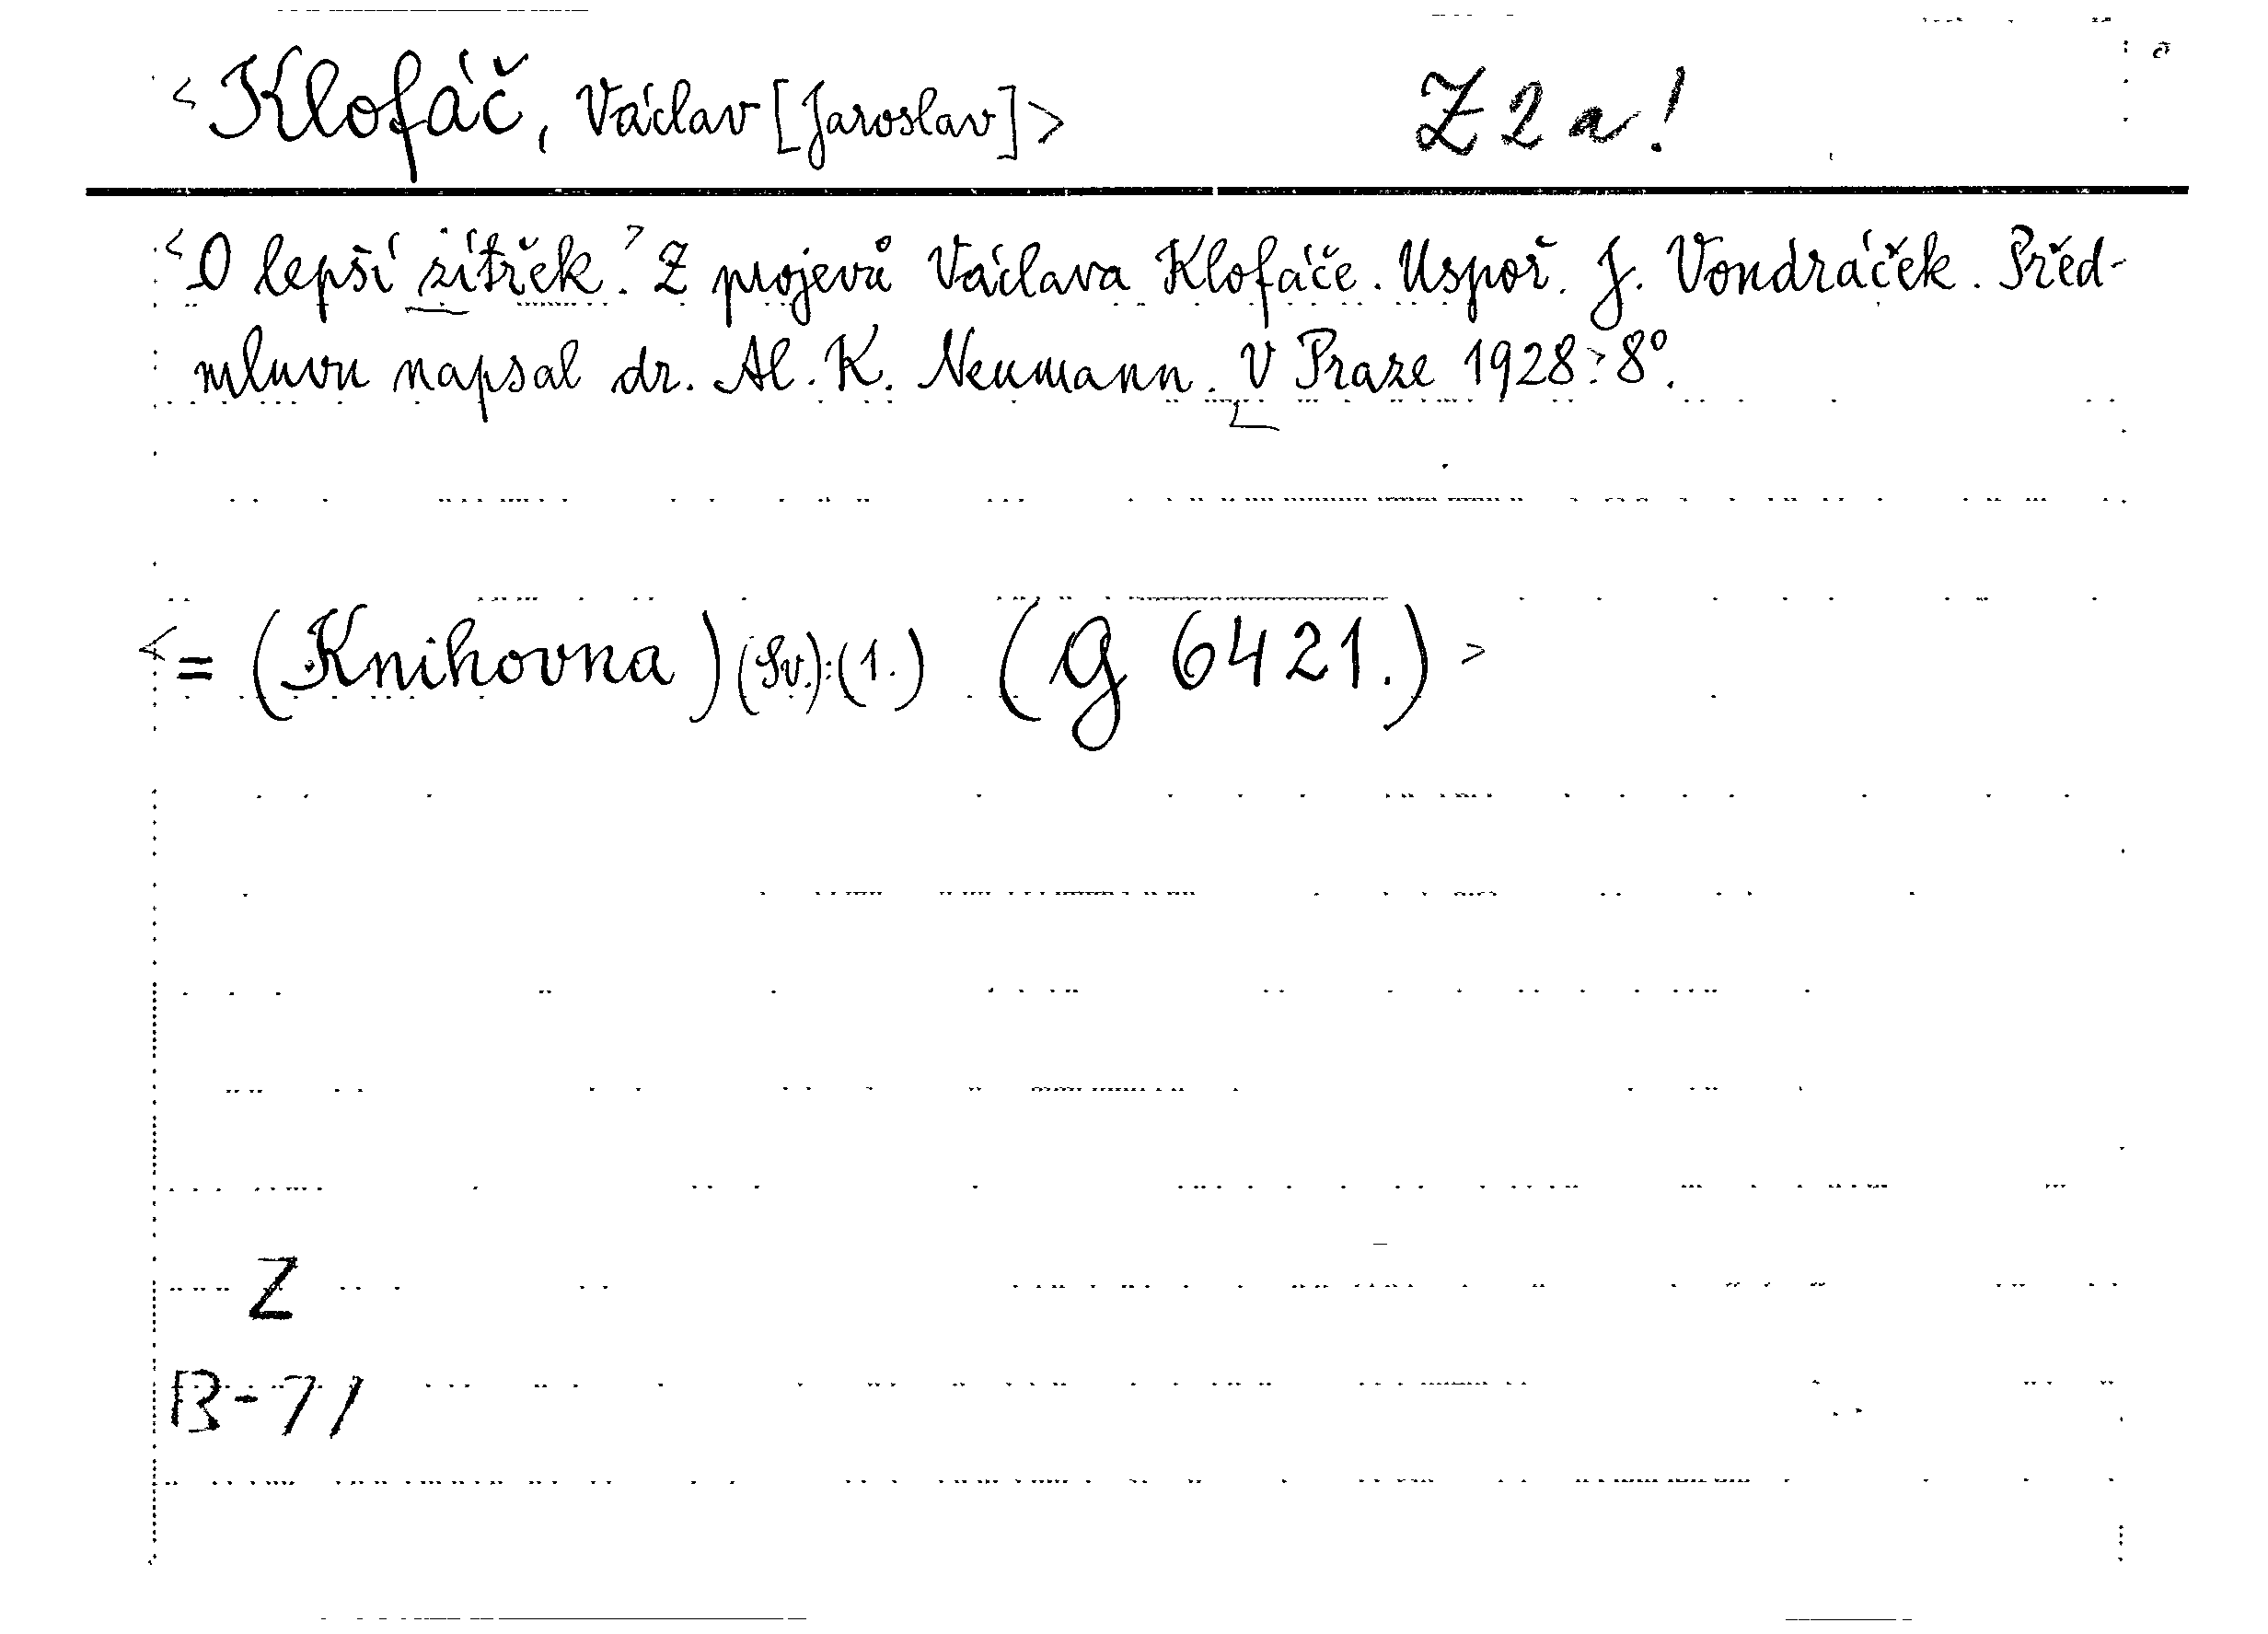 <Klofáč, Václav [Jaroslav]> Z 2 a!
<O lepší zítřek.> Z projevů Václava Klofáče. Uspoř. J. Vondráček. Před-
mluvu napsal dr. Al. K. Neumann. V Praze 1928.> 8°.
<= (Knihovna) (Sv.): (1.) (G 6421.)>
Z
B-71